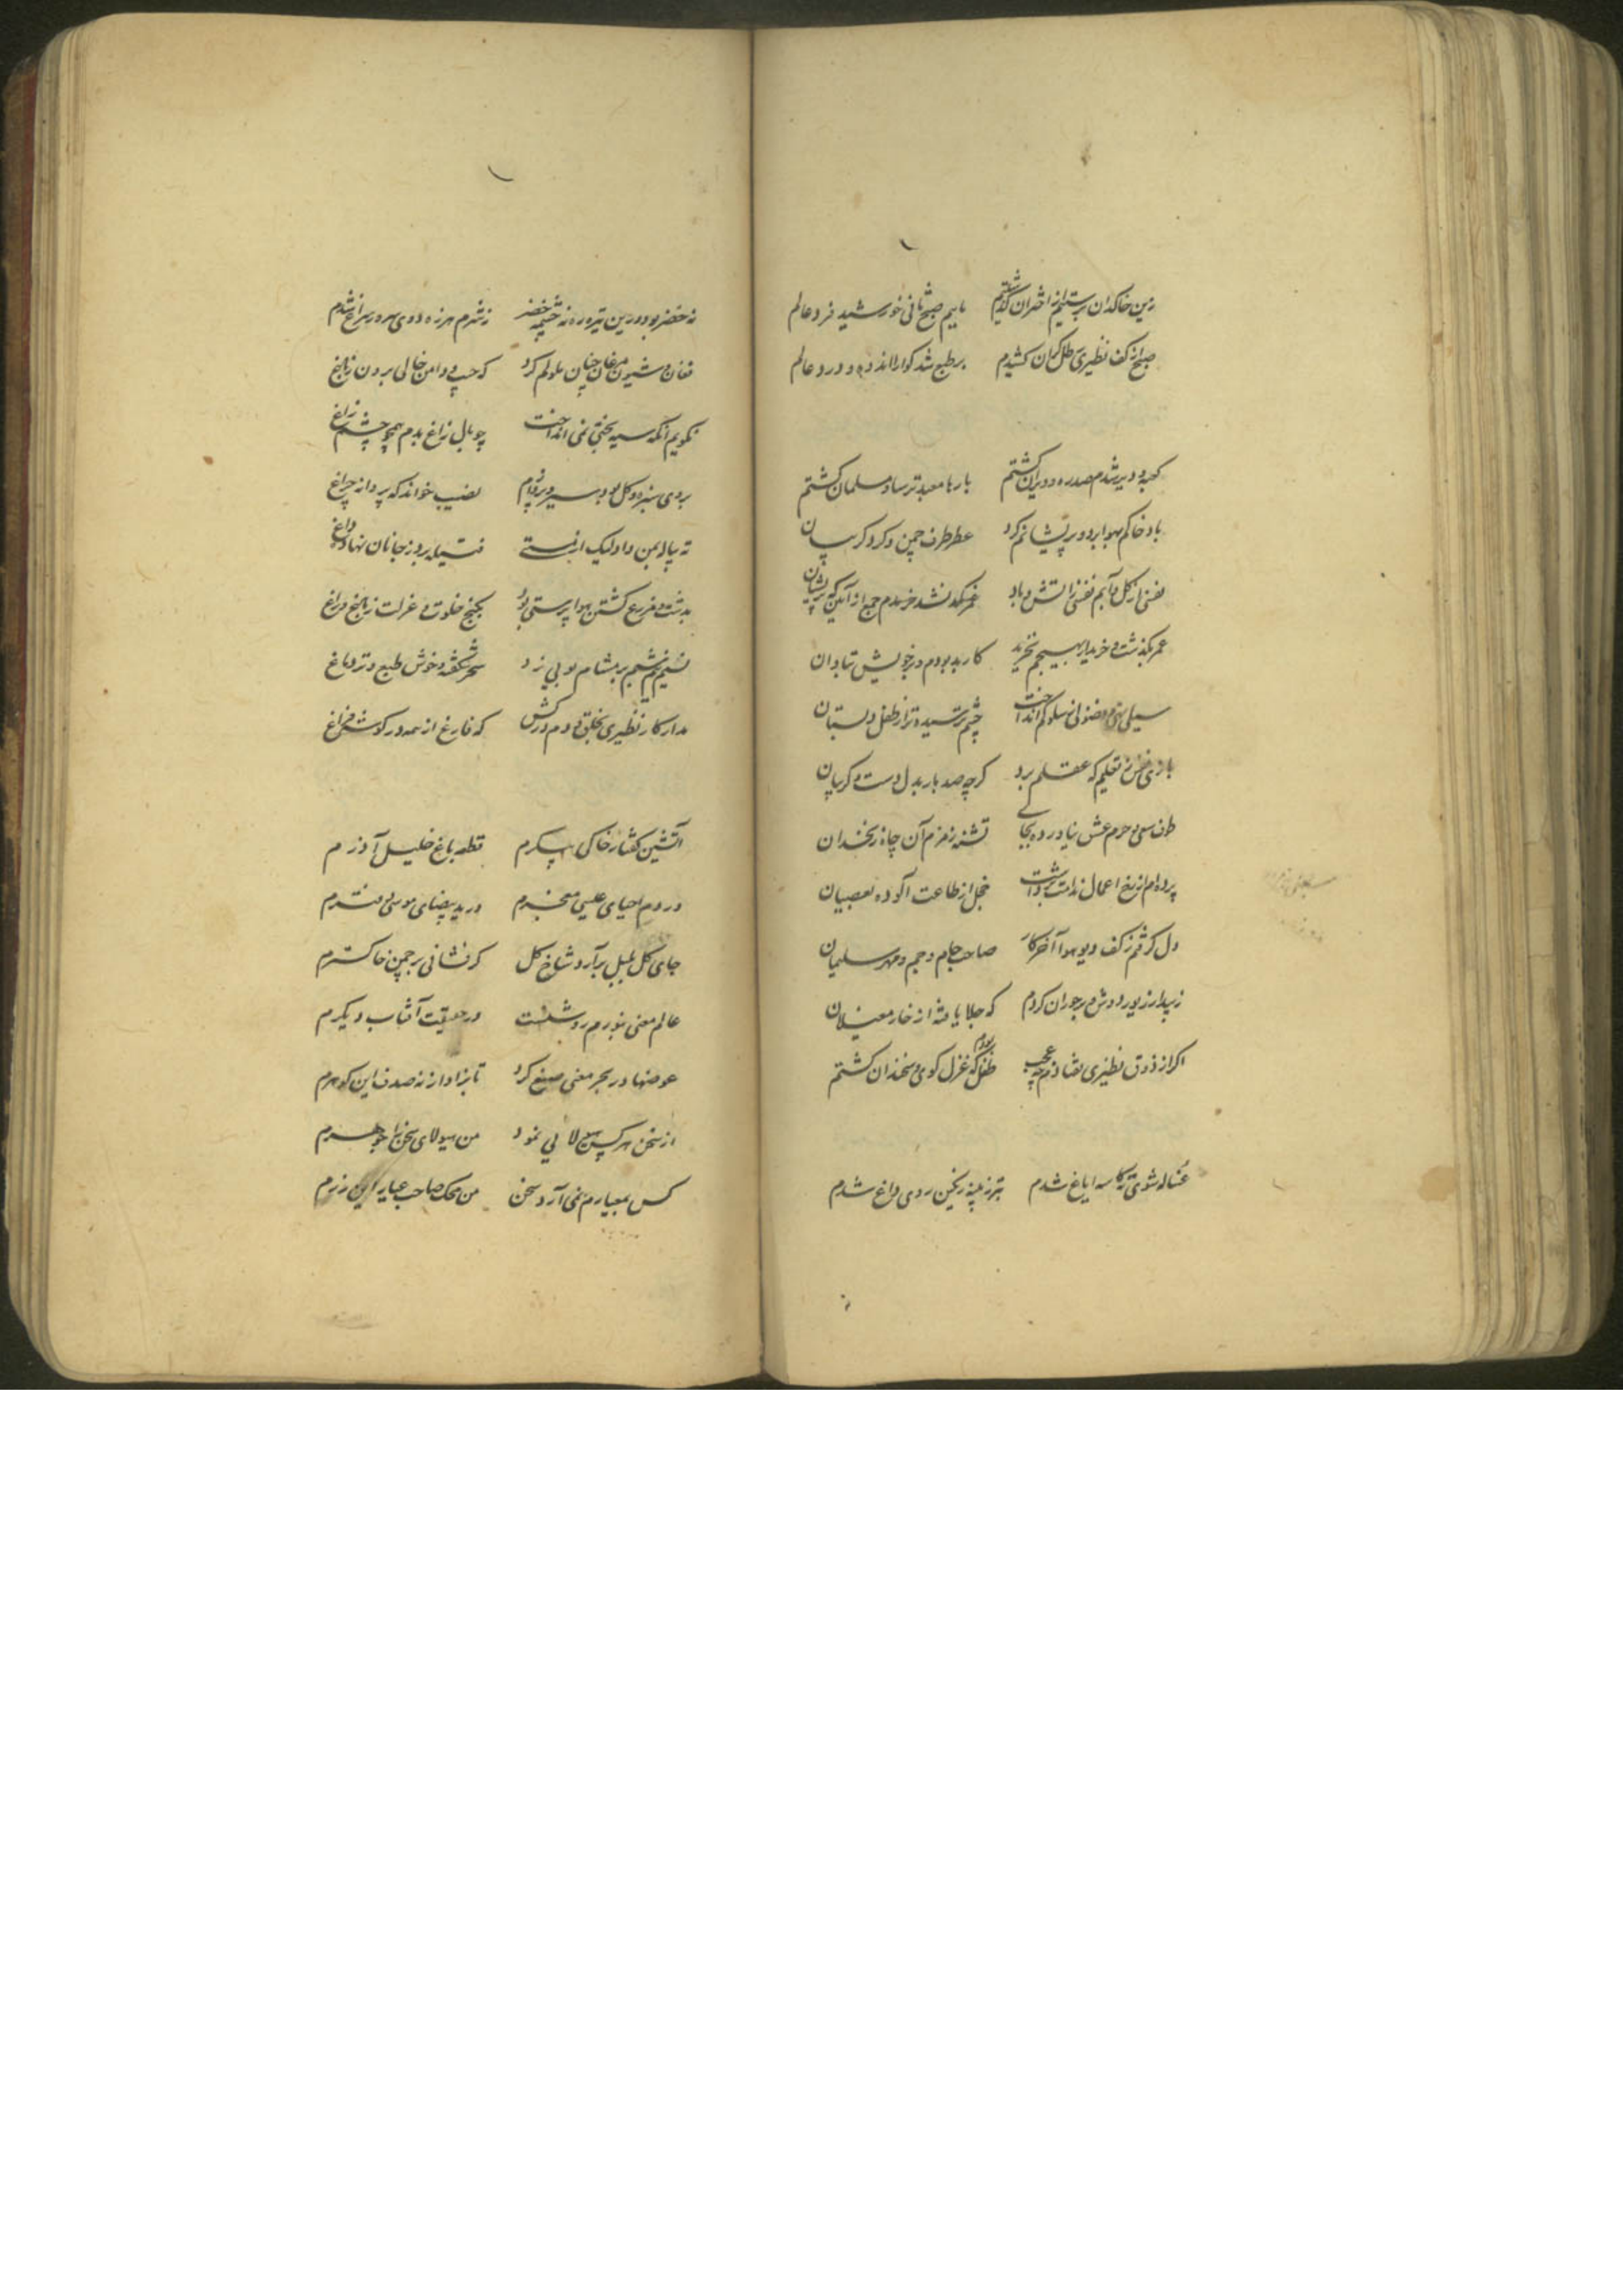 زین خاکدان برستیم از اختران گذشتیم ماییم صبح ثانی خورشید فرد عالم
صبح از کف نظیری رطل گران کشیدم بر طبع شد گوارا اندوه و درد عالم
کعبه و دیر شدم مصدره و دیران گشتم بارها معبد ترسا و مسلمان گشتم
باد خاکم بهوا برد و پریشانم کرد عطر طرف چمن و گرد گریبان
نفسی از گل و آبم نفسی زآتش و باد جمع از آن که پریشان
عمر بگذشت و خریدار بهیچم نخرید کاربد بودم در خویش تاوان
سیلی فضولی بسلوکم انداخت چشم ترسیده تر از طفل دبستان
بازی تعلیم که عقلم برد گرچه صد بار بدل دست و گریبان
طوف سعی حرم عشق نیاورده بجای تشنه زمزم آن چاه زنخدان
پرده ام از رخ اعمال ندامت برداشت خجل از طاعت آلوده بعصیان
دل گرفتم ز کف دیو هوا آخر کار صاحب جام و جم و مهر سلیمان
که جلا یافته از خار مغیلان
اگر از ذوق نظیری چه عجب طفل بودم که غزل گوی و سخندان گشتم
غساله شوی ته کاسه ایاغ شدم بتر ز پنبه رنگین روی داغ شدم
نه خضر بود درین تیره ره نه چشمه خضر ز شرم هرزه دوی سرد در سراغ شدم
فغان و شیون مرغان چنان ملولم کرد که جیب و دامن خالی برون ز باغ
نگویم آنکه سیه بختیم نمی انداخت چو بال زاغ بدم همچو چشم زاغ
بروی سبزه و گل بود سیر و پروازم نصیب خواند که پروانه چراغ
ته پیاله بمن داد لیک از مستی فتیله بر دز جانان نهاد داغ
بدشت و مزرع گشتن هوا پرستی بود بکنج خلوت و عزلت ز باغ و راغ
نسیم بر مشام بویی زد سحر شکفته و خوش طبع و تر دماغ
مدار کار نظیری بخلق و دم درکش که فارغ از همه در گوشه فراغ
آتشین گفتار خاکی پیکرم قطعه باغ خلیل آذرم
در دم احیای عیسی مخبرم در ید بیضای موسی
جای گل بلبل برآرد شاخ گل گر فشانی بر چمن خاکسترم
عالم معنی بنورم روشنست در حقیقت آفتاب دیگرم
غوصها در بحر معنی صنع کرد تا بزاد از نه صدف این گوهرم
از سخن هر کس هیولایی نمود من هیولای سخن را جوهرم
کس بمعیارم نمی آرد سخن من محک صاحب عیار این زرم